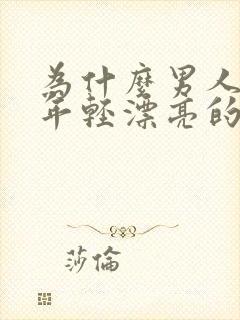 為什麼男人
年輕漂亮的
莎倫